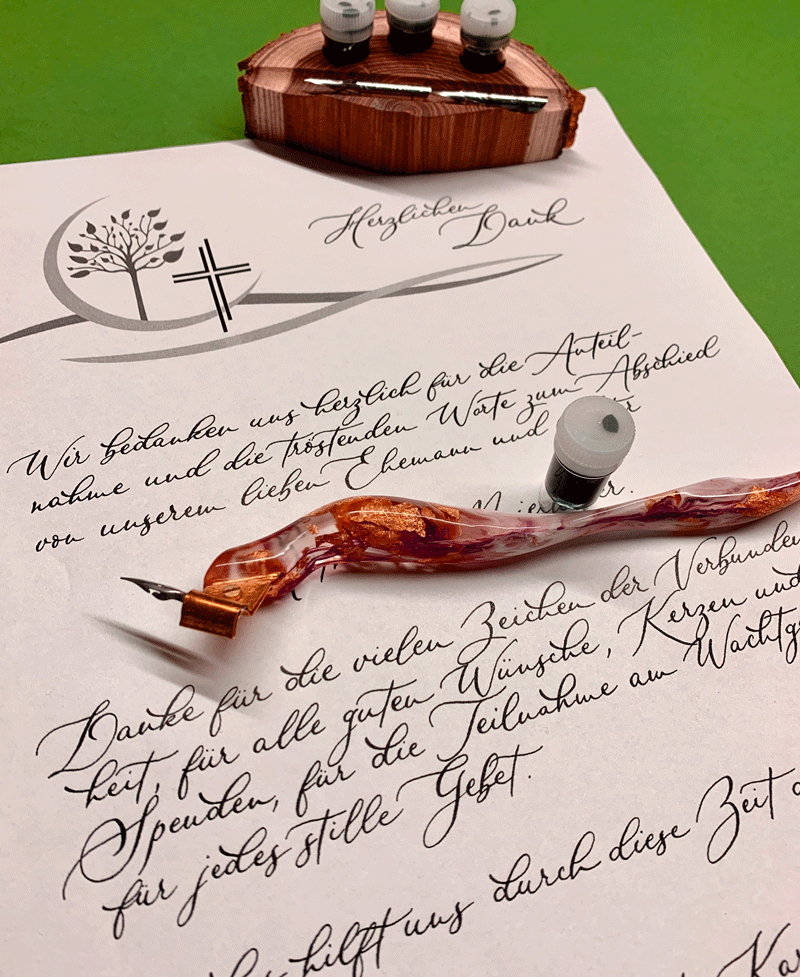 Herzlichen Dank
Wir bedanken uns herzlich für die Anteil-
nahme und die tröstenden Worte zum Abschied
von unserem lieben Ehemann und
Danke für die vielen Zeichen der Verbunden
heit, für alle guten Wünsche, Kerzen und
Spenden, für die Teilnahme am Wachtg
für jedes stille Gebet.
hilft uns durch diese Zeit